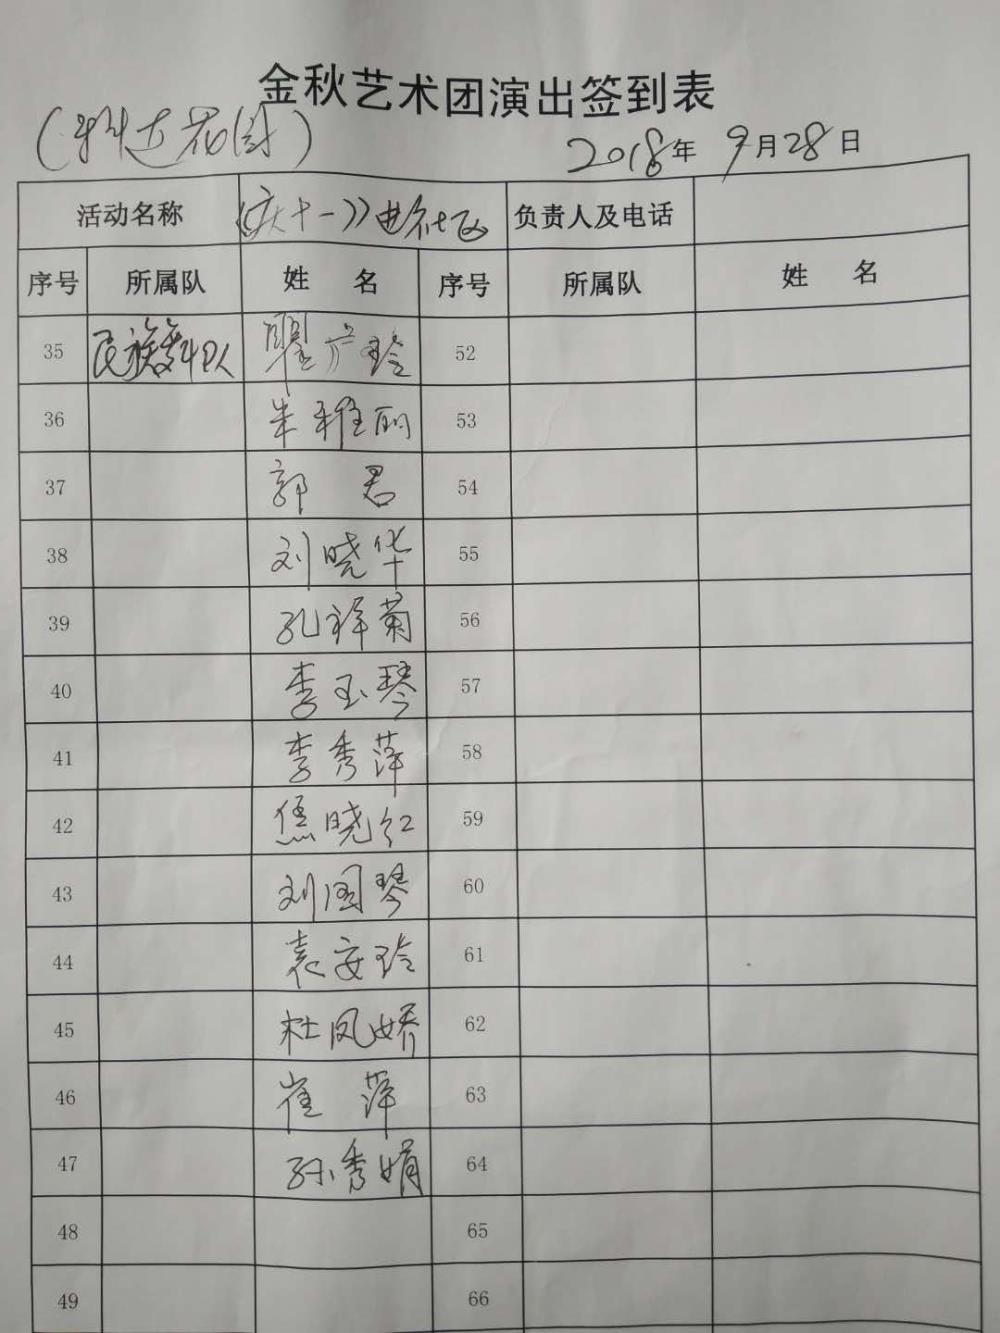 金秋艺术团演出签到表
(科达花园) 2018年9月28日
活动名称 《庆十一》进社区 负责人及电话
序号 所属队 姓名 序号 所属队 姓名
35 民族舞队 瞿广玲 52
36 朱雅丽 53
37 郭君 54
38 刘晓华 55
39 孔祥菊 56
40 李玉琴 57
41 李秀萍 58
42 焦晓红 59
43 刘国琴 60
44 袁安玲 61
45 杜凤娇 62
46 崔萍 63
47 孙秀娟 64
48 65
49 66